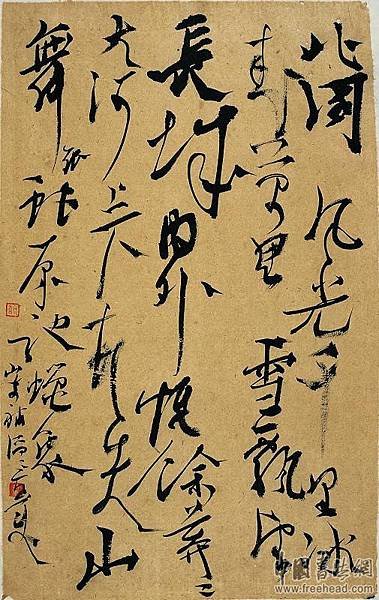 北國风光千里冰
封萬里雪飄望
長城内外惟餘莽〻
大河上下頓失山
舞銀蛇原馳蠟象
中國書法網
www.freehead.com